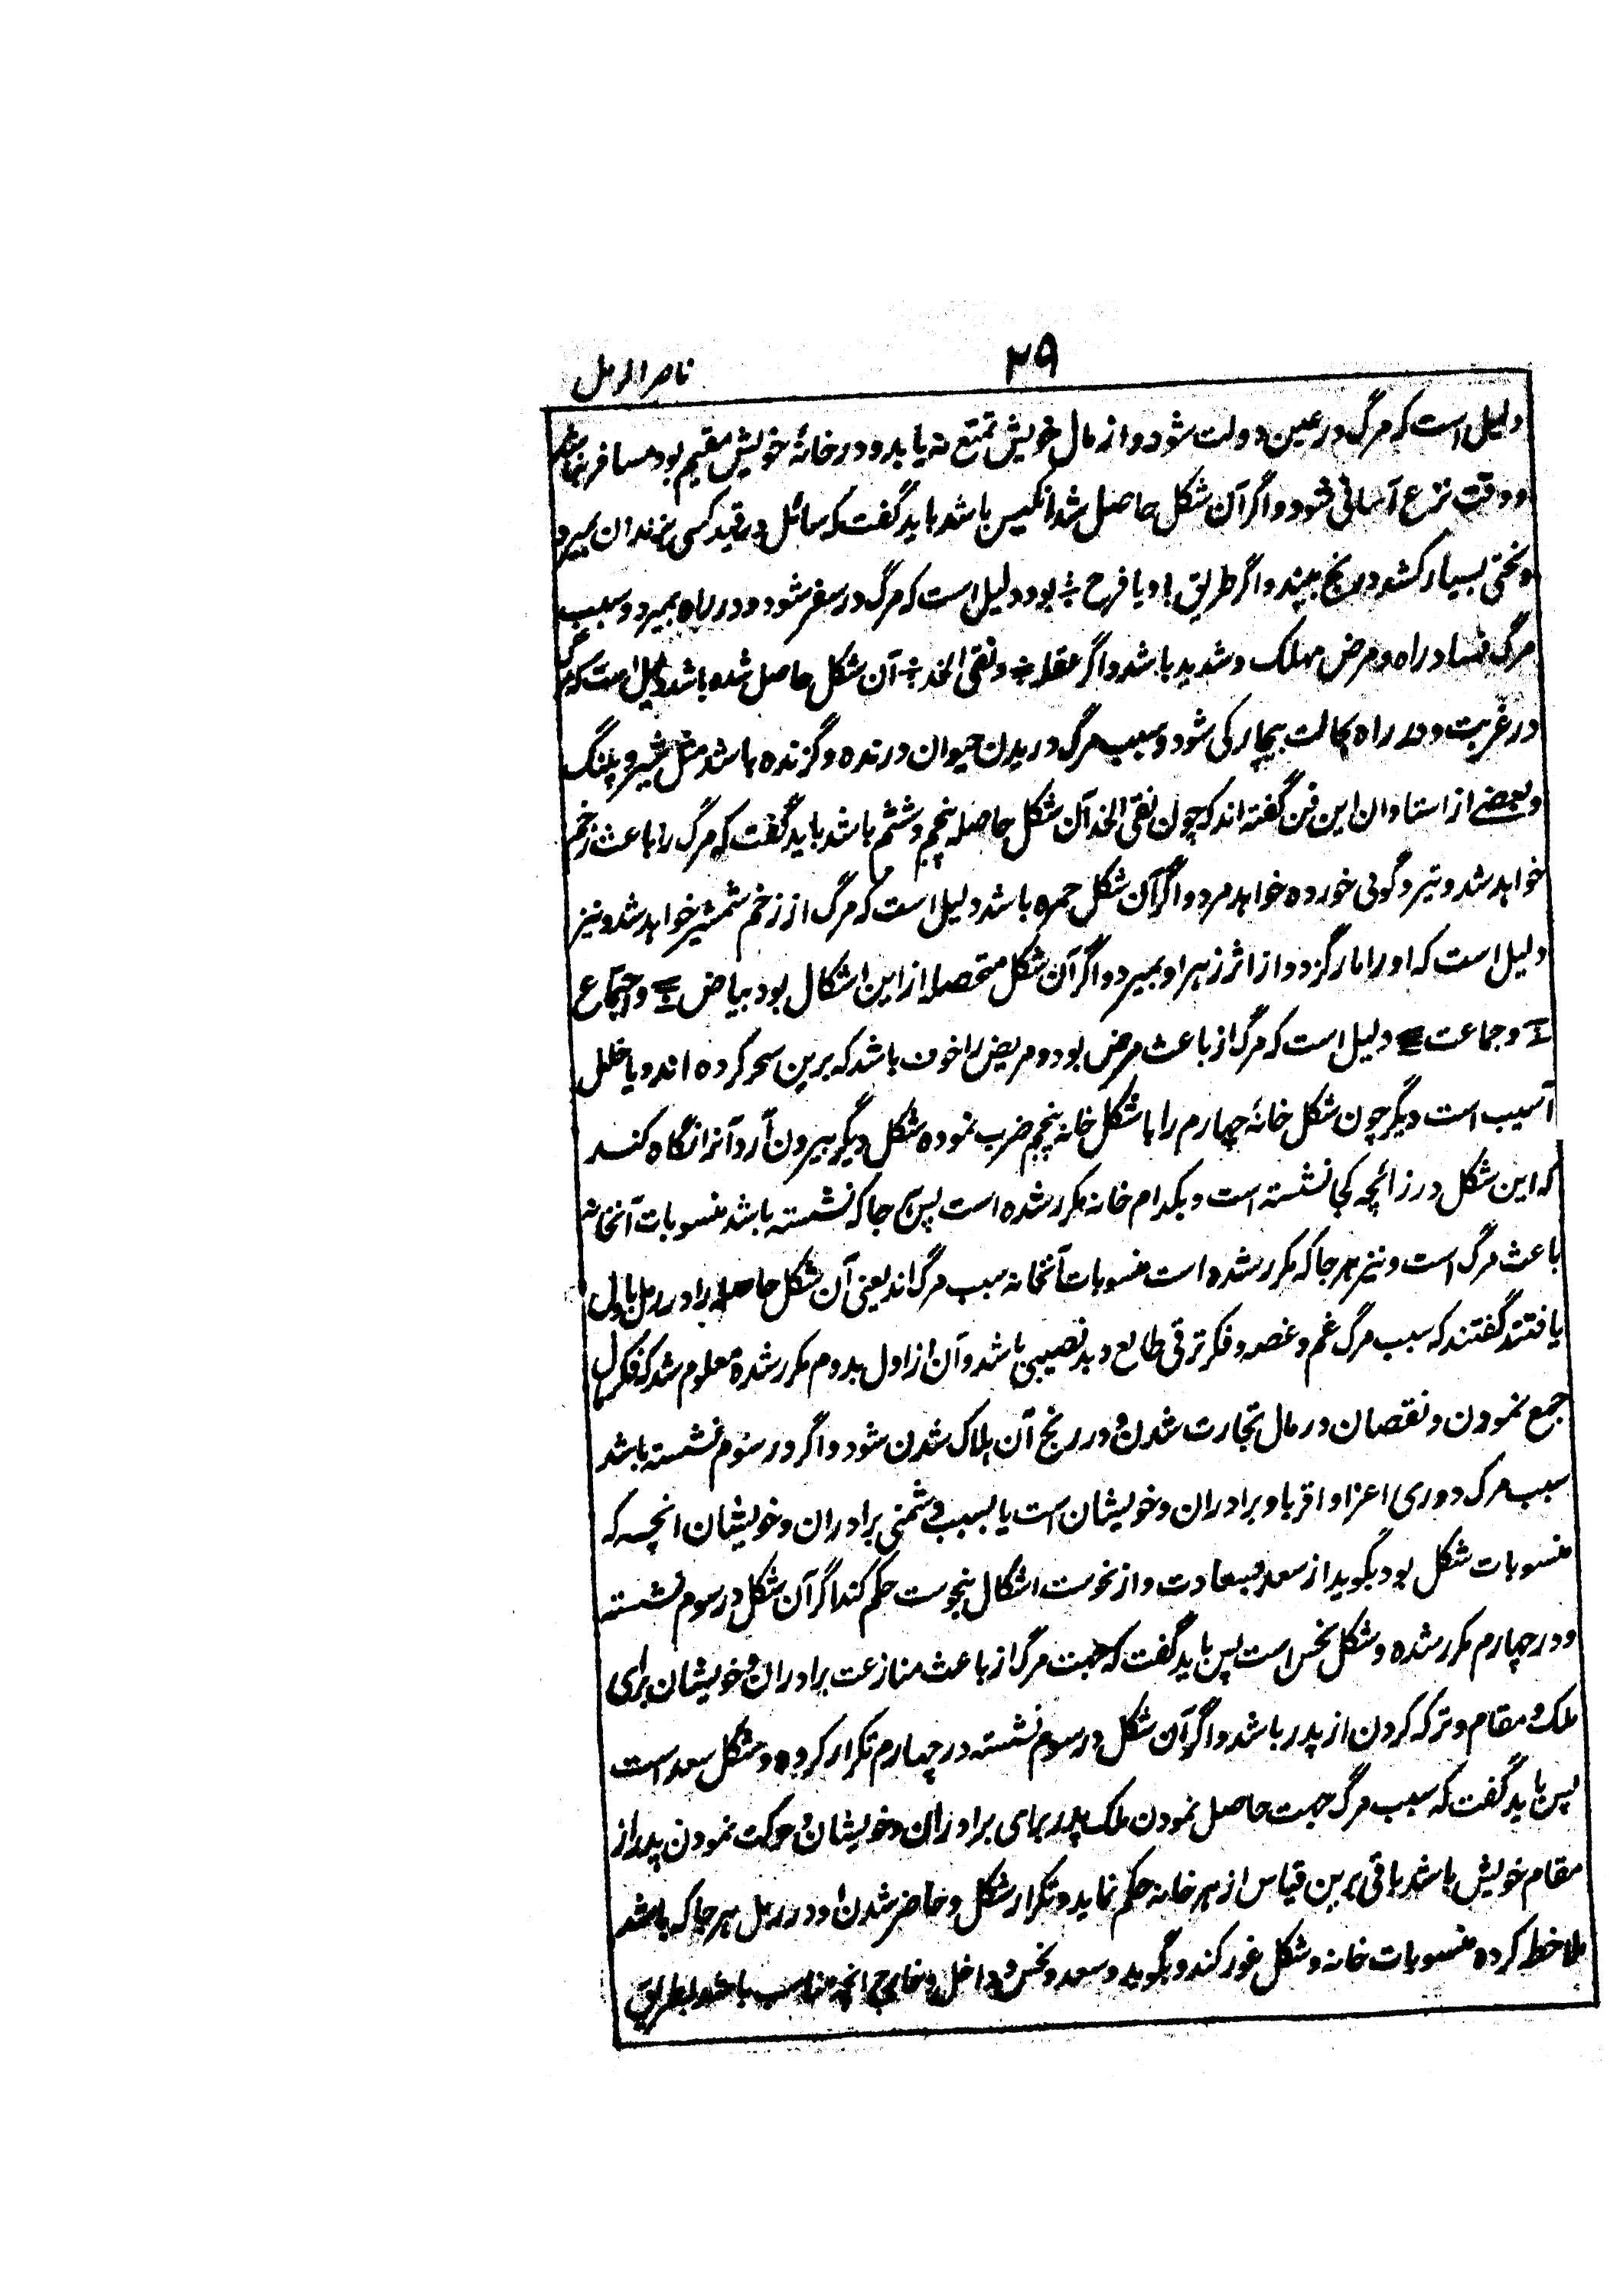 ناصر الرمل
۲۹
دلیل است که مرگ در عین دولت شود و از مال خویش تمتع نه یابد و در خانهٔ خویش مقیم بود مسافر نباشد
و وقت نزع آسانی شود و اگر آن شکل حاصل شد انکیس باشد باید گفت که سائل در قید کسی بزندان بمیرد
و سختی بسیار کشد و رنج بیند و اگر طریق و یا فرح بود دلیل است که مرگ در سفر شود و در راه بمیرد و سبب
مرگ فساد راه و مرض مهلک و شدید باشد و اگر عقله و نقی الخد آن شکل حاصل شده باشد دلیل است که مرگ
در غربت و در راه بحالت بیماری شود و سبب مرگ دریدن حیوان درنده و گزنده باشد مثل شیر و پلنگ
و بعضے از استادان این فن گفته اند که چون نقی الخد آن شکل حاصله پنجم و ششم باشد باید گفت که مرگ را باعث زخم
خواهد شد و تیر و گولی خورده خواهد مرد و اگر آن شکل حمره باشد دلیل است که مرگ از زخم شمشیر خواهد شد و نیز
دلیل است که او را مار گزد و از اثر زهر او بمیرد و اگر آن شکل متحصله از این اشکال بود بیاض و اجتماع
و جماعت دلیل است که مرگ از باعث مرض بود و مریض را خوف باشد که برین سحر کرده اند و یا خلل
آسیب است دیگر چون شکل خانهٔ چهارم را با شکل خانه پنجم ضرب نموده شکل دیگر بیرون آرد آنرا نگاه کند
که این شکل در زائچه کجا نشسته است و بکدام خانه مکرر شده است پس هر جا که نشسته باشد منسوبات آنخانه
باعث مرگ است و نیز هر جا که مکرر شده است منسوبات آنخانه سبب مرگ اند یعنی آن شکل حاصله را در رمل باول
یافتند گفتند که سبب مرگ غم و غصه و فکر ترقی طالع و بدنصیبی باشد و آن از اول بدوم مکرر شده معلوم شد که فکر مال
جمع نمودن و نقصان در مال تجارت شدن و در رنج آن هلاک شدن شود و اگر در سوم نشسته باشد
سبب مرگ دوری اعزا و اقربا و برادران و خویشان است یا بسبب دشمنی برادران و خویشان انچه که
منسوبات شکل بود بگوید از سعد بسعادت و از نحوست اشکال بنحوست حکم کند اگر آن شکل در سوم نشسته
و در چهارم مکرر شده و شکل نحس است پس باید گفت که جهت مرگ از باعث منازعت برادران و خویشان برای
ملک و مقام و ترکه کردن از پدر باشد و اگر آن شکل در سوم نشسته در چهارم تکرار کرده و شکل سعد است
پس باید گفت که سبب مرگ جهت حاصل نمودن ملک پدر برای برادران و خویشان و حرکت نمودن پدر از
مقام خویش باشد باقی برین قیاس از هر خانه حکم نماید و تکرار شکل و حاضر شدن او در رمل هر جا که باشد
ملاحظه کرده منسوبات خانه و شکل غور کند و بگوید و سعد و نحس و داخل و خارج انچه مناسب باشد بطریق